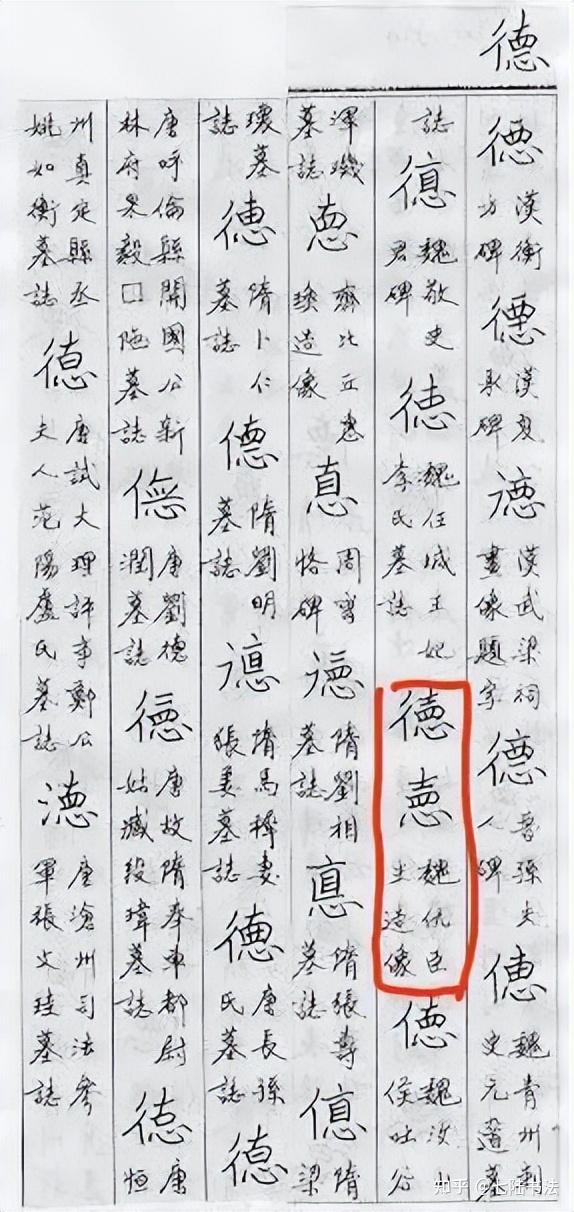 德
德 漢衡方碑 德 漢夏承碑 德 漢武梁祠畫像題字 德 晉孫夫人碑 德 魏青州刺史元遥墓
誌 德 魏敬史君碑 德 魏任城王妃李氏墓誌 德 悳 魏仇臣生造像 德 魏汶山侯吐谷
渾璣墓誌 悳 齊比丘惠瑍造像 悳 周恪碑 德 隋劉相墓誌 悳 隋張壽墓誌 德 隋梁
瓌墓誌 德 隋卜仁墓誌 德 隋劉明墓誌 德 隋馬穉妻張姜墓誌 德 唐長孫氏墓誌 德
唐呼倫縣開國公新林府果毅□陁墓誌 德 唐劉德潤墓誌 德 唐故隋奉車都尉姑臧段瑋墓誌 德 唐恒
州真定縣丞姚如衡墓誌 德 唐試大理評事鄭公夫人范陽盧氏墓誌 德 唐滄州司法參軍張文珪墓誌
知乎 @七陆书法